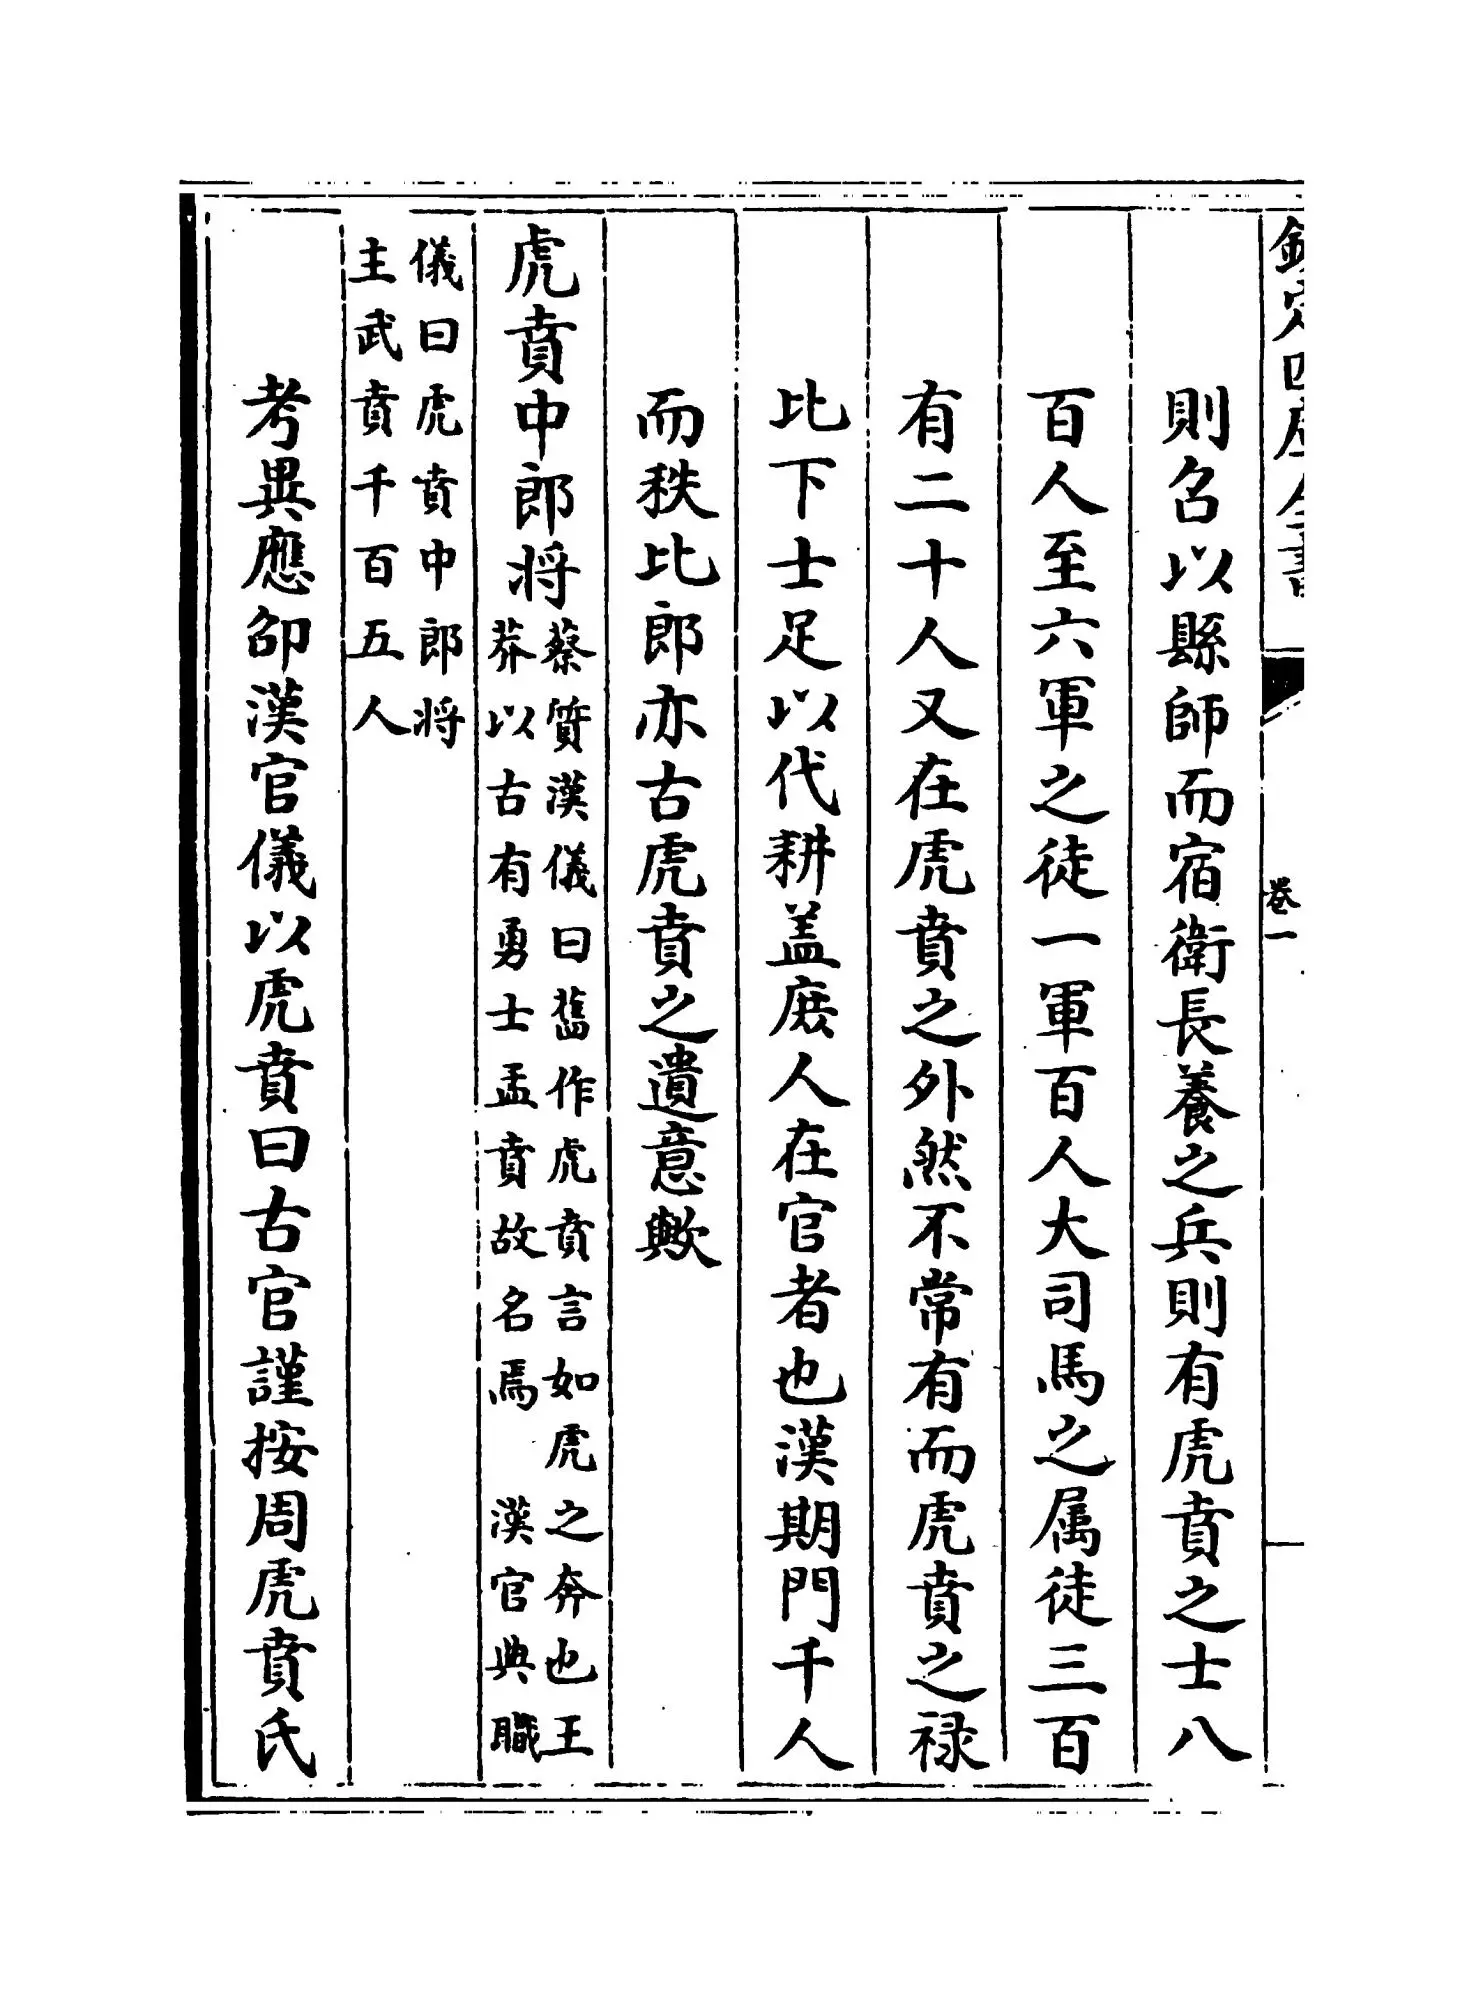 欽定四庫全書
卷一
則名以縣師而宿衛長養之兵則有虎賁之士八
百人至六軍之徒一軍百人大司馬之属徒三百
有二十人又在虎賁之外然不常有而虎賁之禄
比下士足以代耕盖庶人在官者也漢期門千人
而秩比郎亦古虎賁之遺意歟
虎賁中郎将
蔡質漢儀曰舊作虎賁言如虎之奔也王
莽以古有勇士孟賁故名焉 漢官典職
儀曰虎賁中郎将
主武賁千百五人
考異應卲漢官儀以虎賁曰古官謹按周虎賁氏